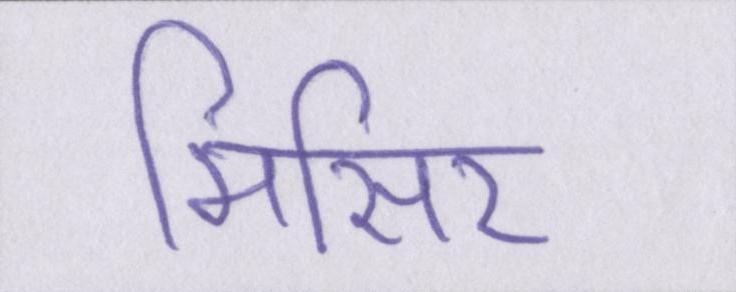 मिसिर